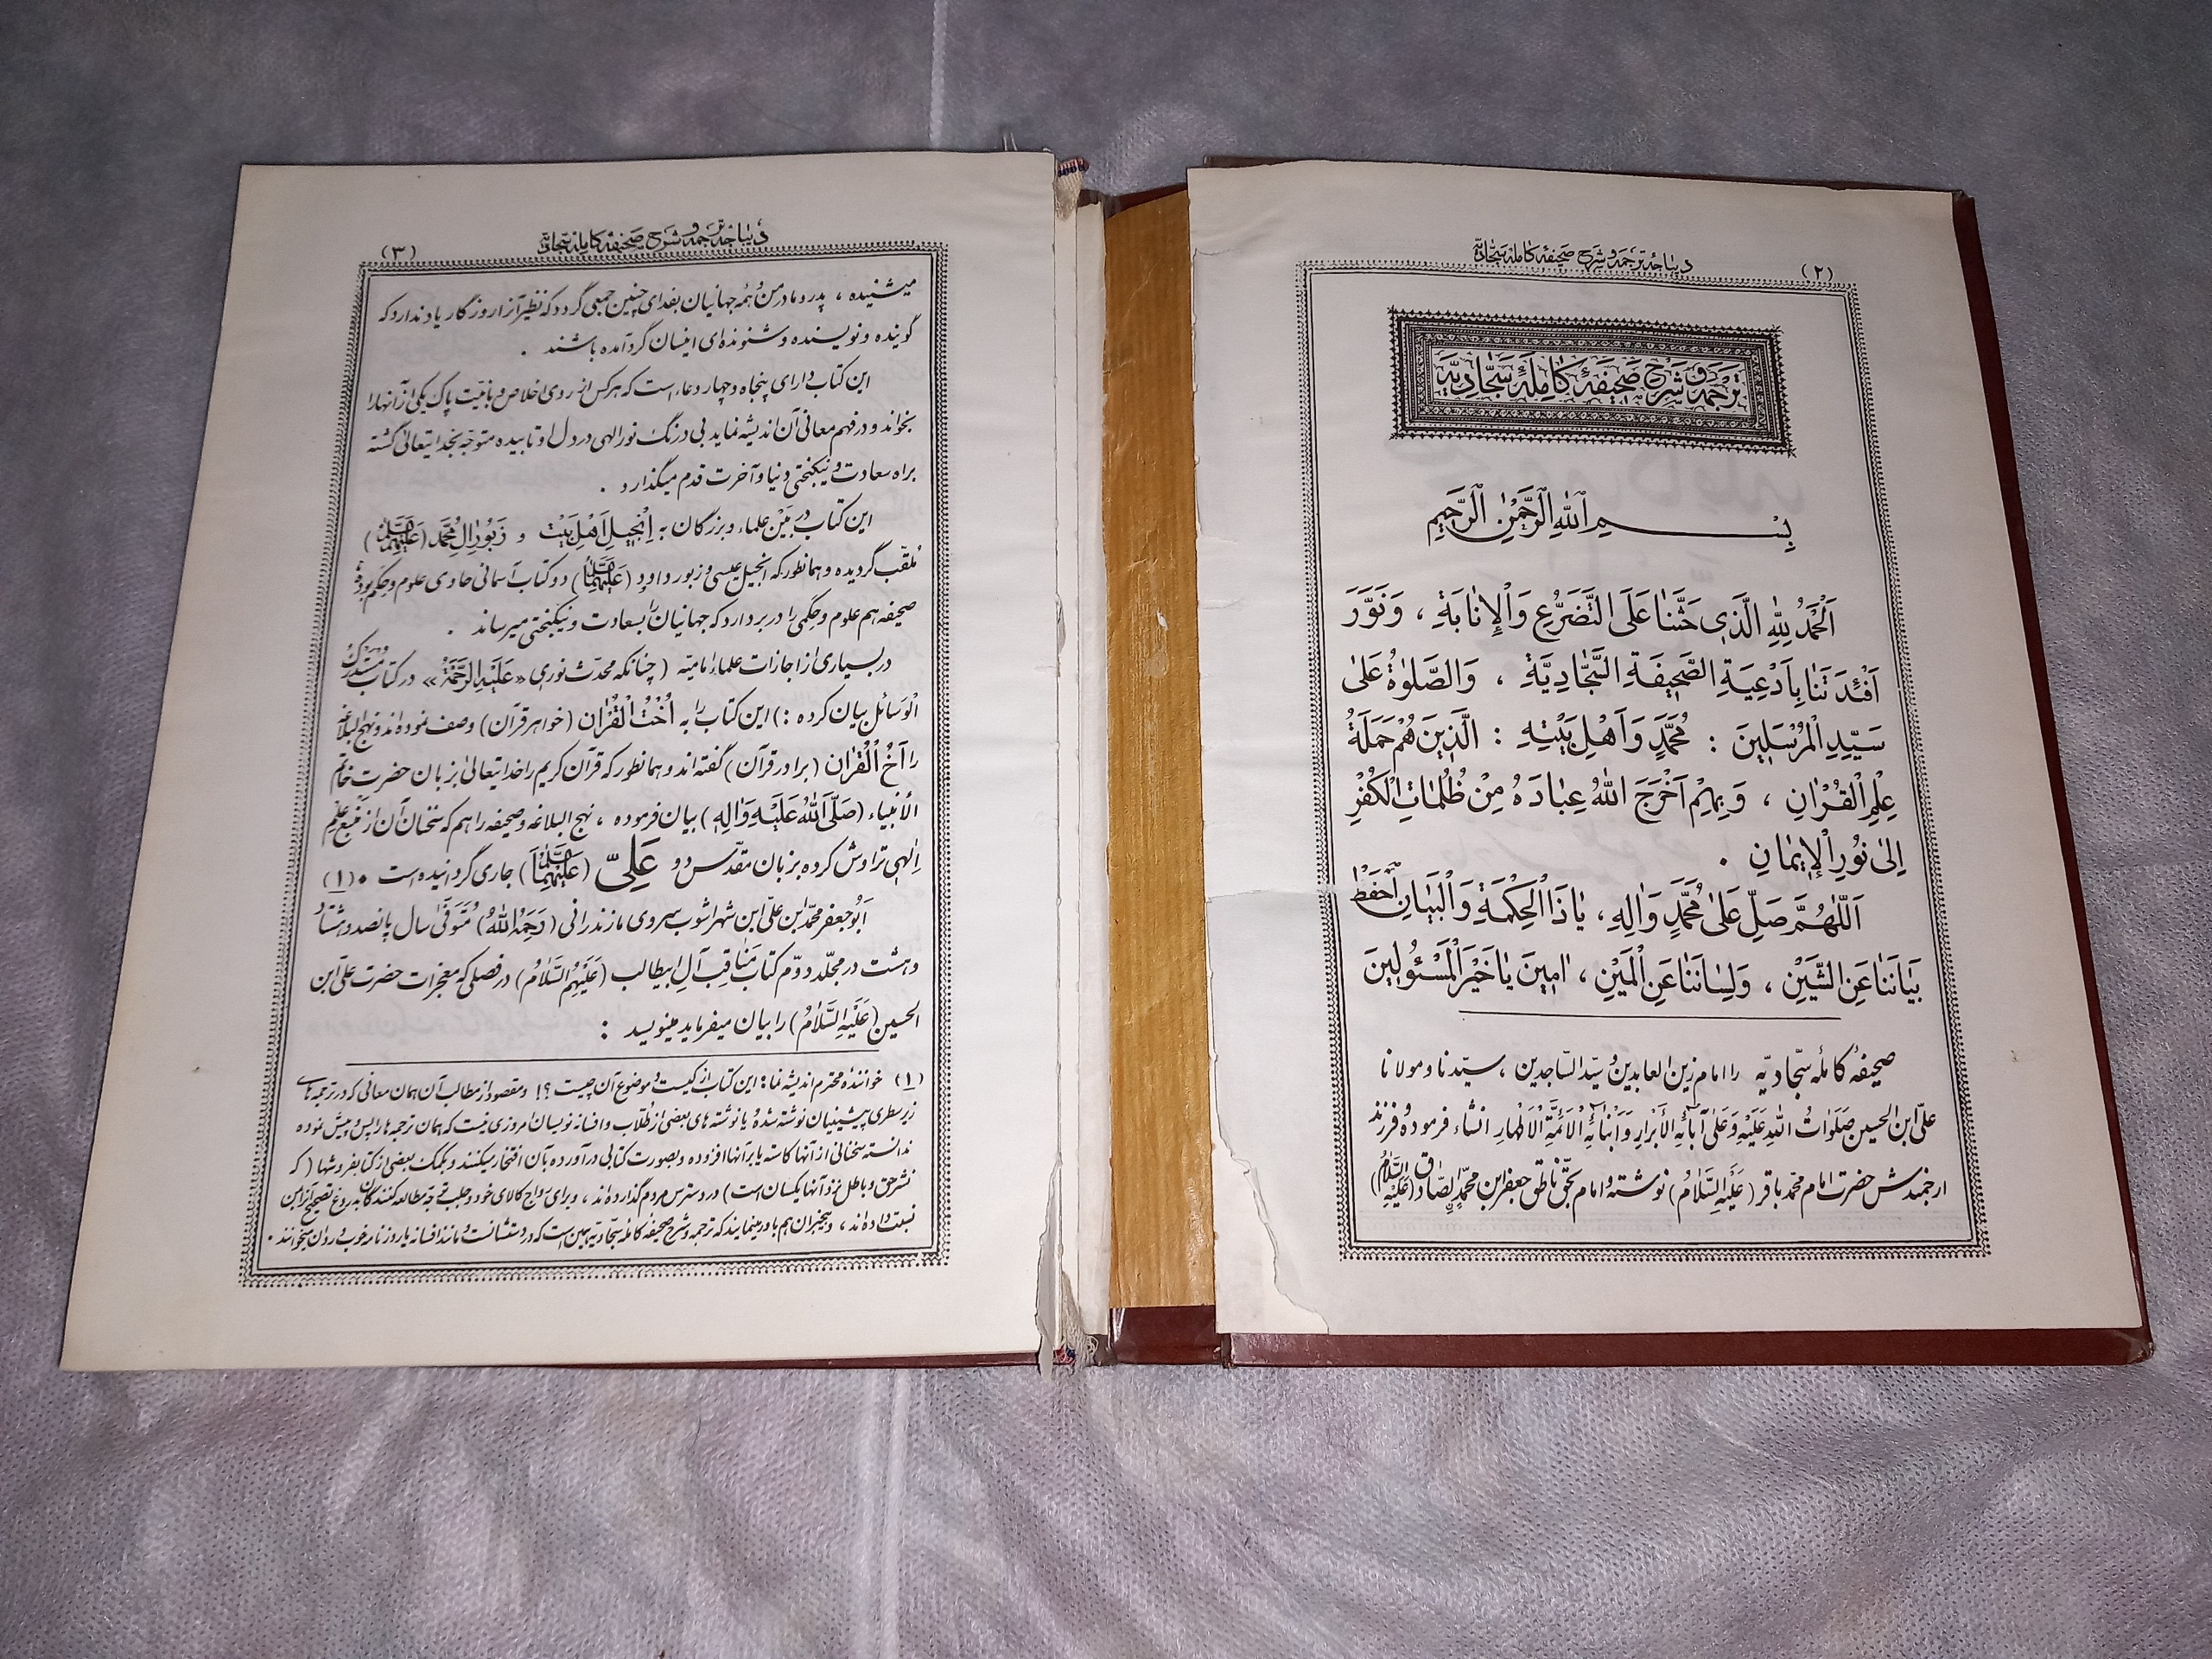 (٢)
دیباجهٔ ترجمه و شرح صحیفهٔ کاملهٔ سجّادیّه
ترجمه و شرح صحیفهٔ کاملهٔ سجّادیّه
بِسْمِ اللهِ الرَّحْمٰنِ الرَّحیمِ
اَلْحَمْدُ لِلّٰهِ الَّذی حَثَّنا عَلَی التَّضَرُّعِ وَالْإِنابَةِ ، وَنَوَّرَ
اَفْئِدَتَنا بِاَدْعِیَةِ الصَّحیفَةِ السَّجّادِیَّةِ ، وَالصَّلوٰةُ عَلیٰ
سَیِّدِ الْمُرْسَلینَ : مُحَمَّدٍ وَاَهْلِ بَیْتِهِ : الَّذینَ هُمْ حَمَلَةُ
عِلْمِ الْقُرْاٰنِ ، وَبِهِمْ اَخْرَجَ اللهُ عِبادَهُ مِنْ ظُلُماتِ الْکُفْرِ
اِلیٰ نُورِ الْإیمانِ .
اَللّٰهُمَّ صَلِّ عَلیٰ مُحَمَّدٍ وَاٰلِهِ ، یا ذَا الْحِکْمَةِ وَالْبَیانِ اِحْفَظْ
بَیانَنا عَنِ الشَّیْنِ ، وَلِسانَنا عَنِ الْمَیْنِ ، اٰمینَ یا خَیْرَ الْمَسْئُولینَ
صحیفهٔ کاملهٔ سجّادیّه را امام زین العابدین و سیّد السّاجدین ، سیّدنا و مولانا
علیّ ابن الحسین صَلَواتُ اللهِ عَلَیْهِ وَعَلیٰ آبائِهِ الْأَبْرارِ وَاَبْنائِهِ الْاَئِمَّةِ الْاَطْهارِ انشاء فرموده و فرزند
ارجمندش حضرت امام محمّد باقر (عَلَیْهِ السَّلامُ) نوشته و امام بحقّ ناطق جعفر ابن محمّد الصّادق (عَلَیْهِ السَّلامُ)
دیباجهٔ ترجمه و شرح صحیفهٔ کاملهٔ سجّادیّه
(٣)
میشنیده ، پدر و مادر من و همه جهانیان بفدای چنین جمعی گردد که نظیر آنرا روزگار یاد ندارد که
گوینده و نویسنده و شنونده‌ای اینسان گرد آمده باشند .
این کتاب دارای پنجاه و چهار دعاء است که هر کس از روی اخلاص و با نیّت پاک یکی از آنها را
بخواند و در فهم معانی آن اندیشه نماید بی درنگ نور الهی در دل او تابیده متوجّه بخدایتعالی گشته
براه سعادت و نیکبختی دنیا و آخرت قدم میگذارد .
این کتاب در بین علماء و بزرگان به اِنْجیلِ اَهْلِ بَیْت و زَبُورِ اٰلِ مُحَمَّد (عَلَیْهِمُ السَّلامُ)
مُلقّب گردیده و همانطور که انجیل عیسی و زبور داود (عَلَیْهِمَا السَّلامُ) دو کتاب آسمانی حاوی علوم و حِکم بوده
صحیفه هم علوم و حِکمی را در بر دارد که جهانیان را بسعادت و نیکبختی میرساند .
در بسیاری از اجازات علماء امامیّه (چنانکه محدّث نوری «عَلَیْهِ الرَّحْمَةُ» در کتاب مستدرک
الْوَسائل بیان کرده :) این کتاب را به اُخْتُ الْقُرْاٰن (خواهر قرآن) وصف نموده‌اند و نهج البلاغه
را اَخُ الْقُرْاٰن (برادر قرآن) گفته‌اند و همانطور که قرآن کریم را خدایتعالی بزبان حضرت خاتم
الْأنبیاء (صَلَّی اللهُ عَلَیْهِ وَاٰلِهِ) بیان فرموده ، نهج البلاغه و صحیفه را هم که سخنان آن از منبع علم
اِلٰهی تراوش کرده بزبان مقدّس دو عَلِیّ (عَلَیْهِمَا السَّلامُ) جاری گردانیده است . (١)
اَبُو جعفر محمّد ابن علیّ ابن شهراشوب سروی مازندرانی (رَحِمَهُ اللهُ) مُتوفّیٰ سال پانصد و هشتاد
و هشت در مجلّد دوّم کتاب مَناقب آلِ ابیطالب (عَلَیْهِمُ السَّلامُ) در فصلی که معجزات حضرت علیّ ابن
الحسین (عَلَیْهِ السَّلامُ) را بیان میفرماید مینویسد :
(١) خوانندهٔ محترم اندیشه نما : این کتاب از کیست و موضوع آن چیست ؟! و مقصود از مطالب آن همان معانی که در ترجمه‌های
زیر سطری پیشینیان نوشته شده و یا نوشته‌های بعضی از طلّاب و افسانه نویسان امروزی نیست که همان ترجمه‌ها را پس و پیش نموده
ندانسته سخنانی از آنها کاسته یا بر آنها افزوده و بصورت کتابی در آورده بآن افتخار میکنند و بکمک بعضی از کتابفروشها (که
نشر حق و باطل نزد آنها یکسان است) در دسترس مردم گذارده‌اند ، و برای رواج کالای خود و جلب توجّه مطالعه کنندگان بدروغ تصحیح آنرا باین
نسبت داده‌اند ، و بیخبران هم باور مینمایند که ترجمه و شرح صحیفهٔ کاملهٔ سجّادیّه همین است که در دست شانست و مانند افسانه یا روزنامه خوب و روان میخوانند .